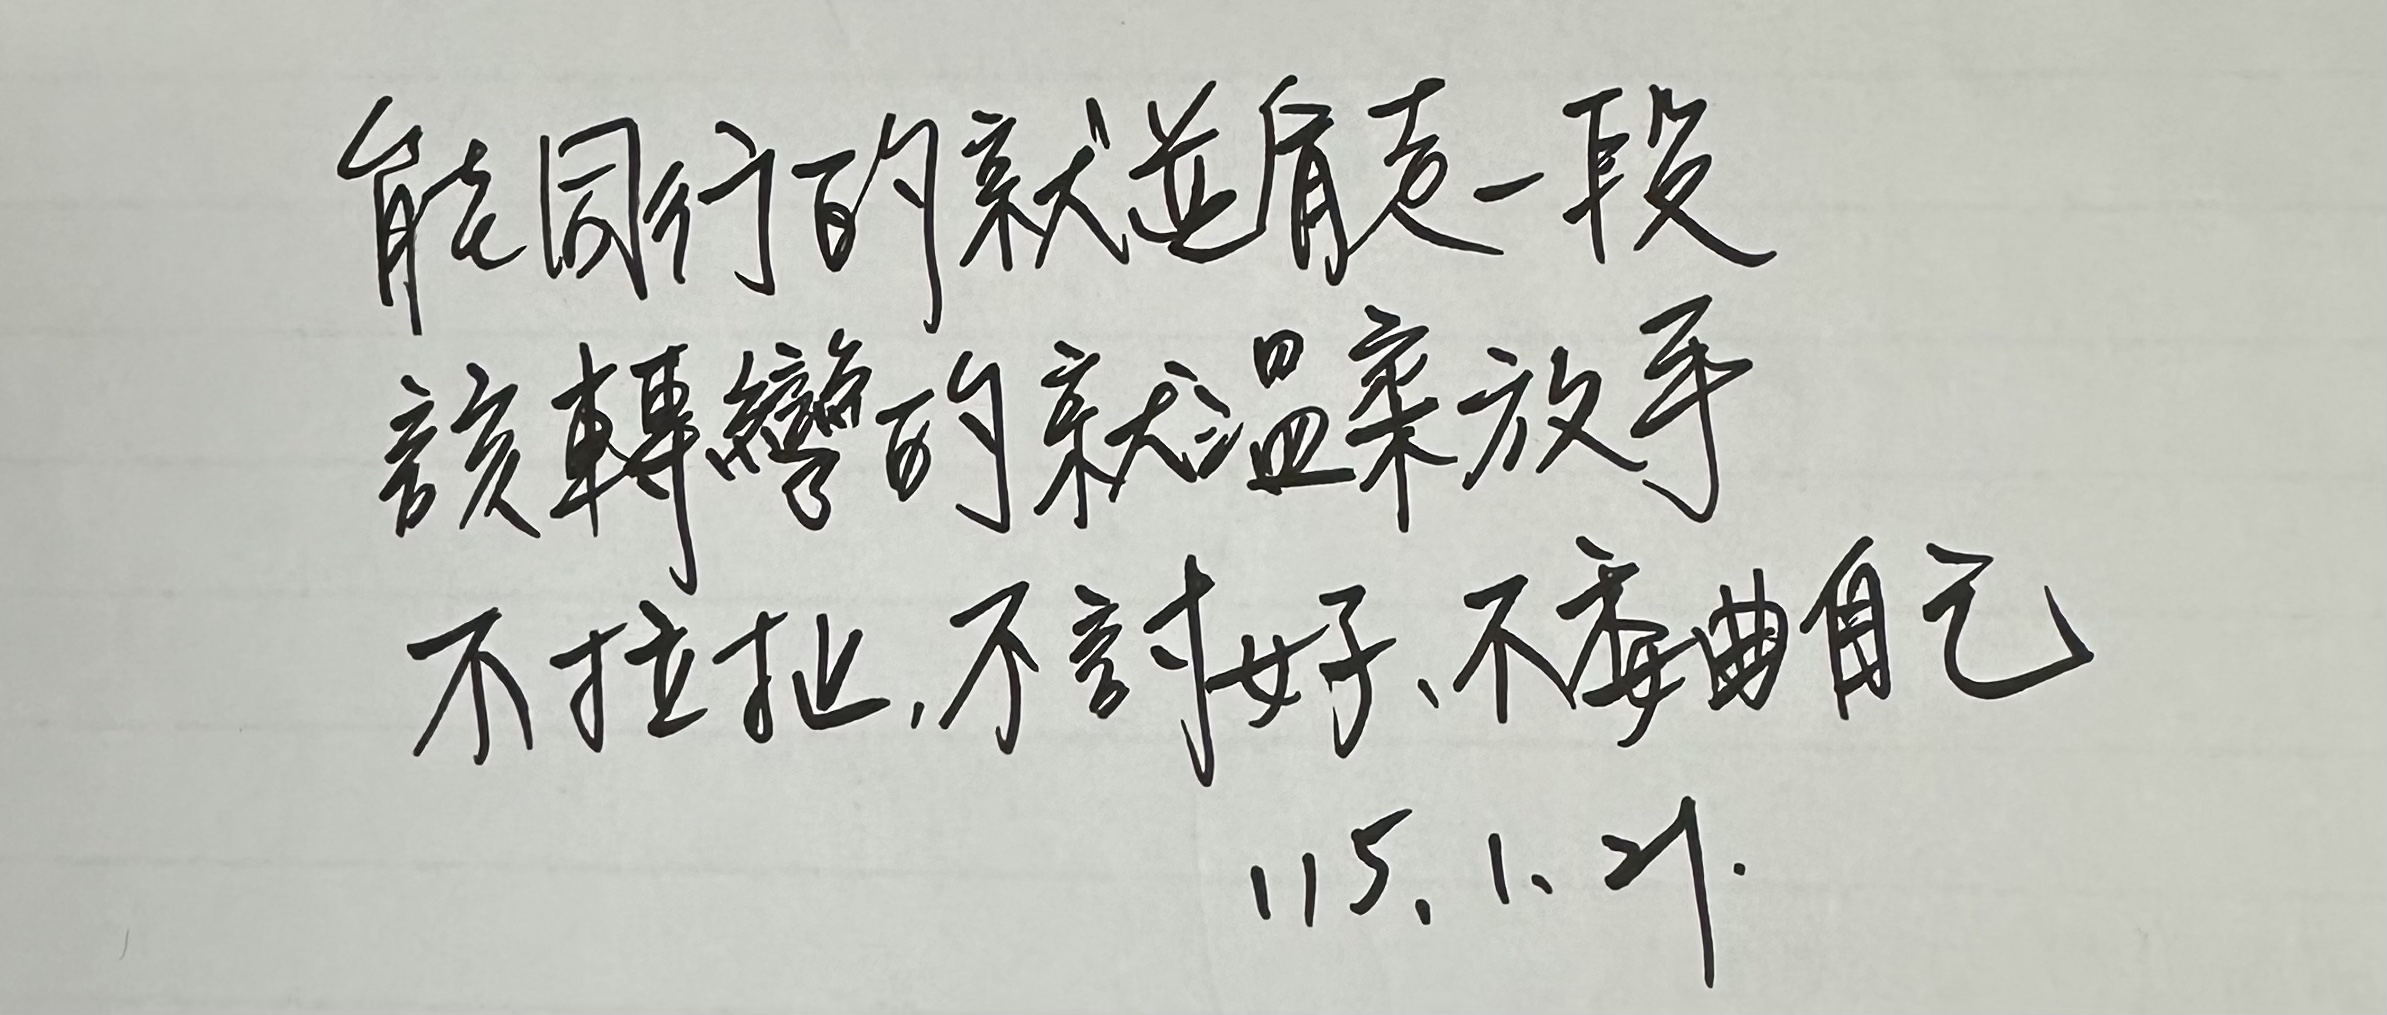 能同行的就並肩走一段
該轉彎的就溫柔放手
不拉扯,不討好、不委曲自己
115.1.21.